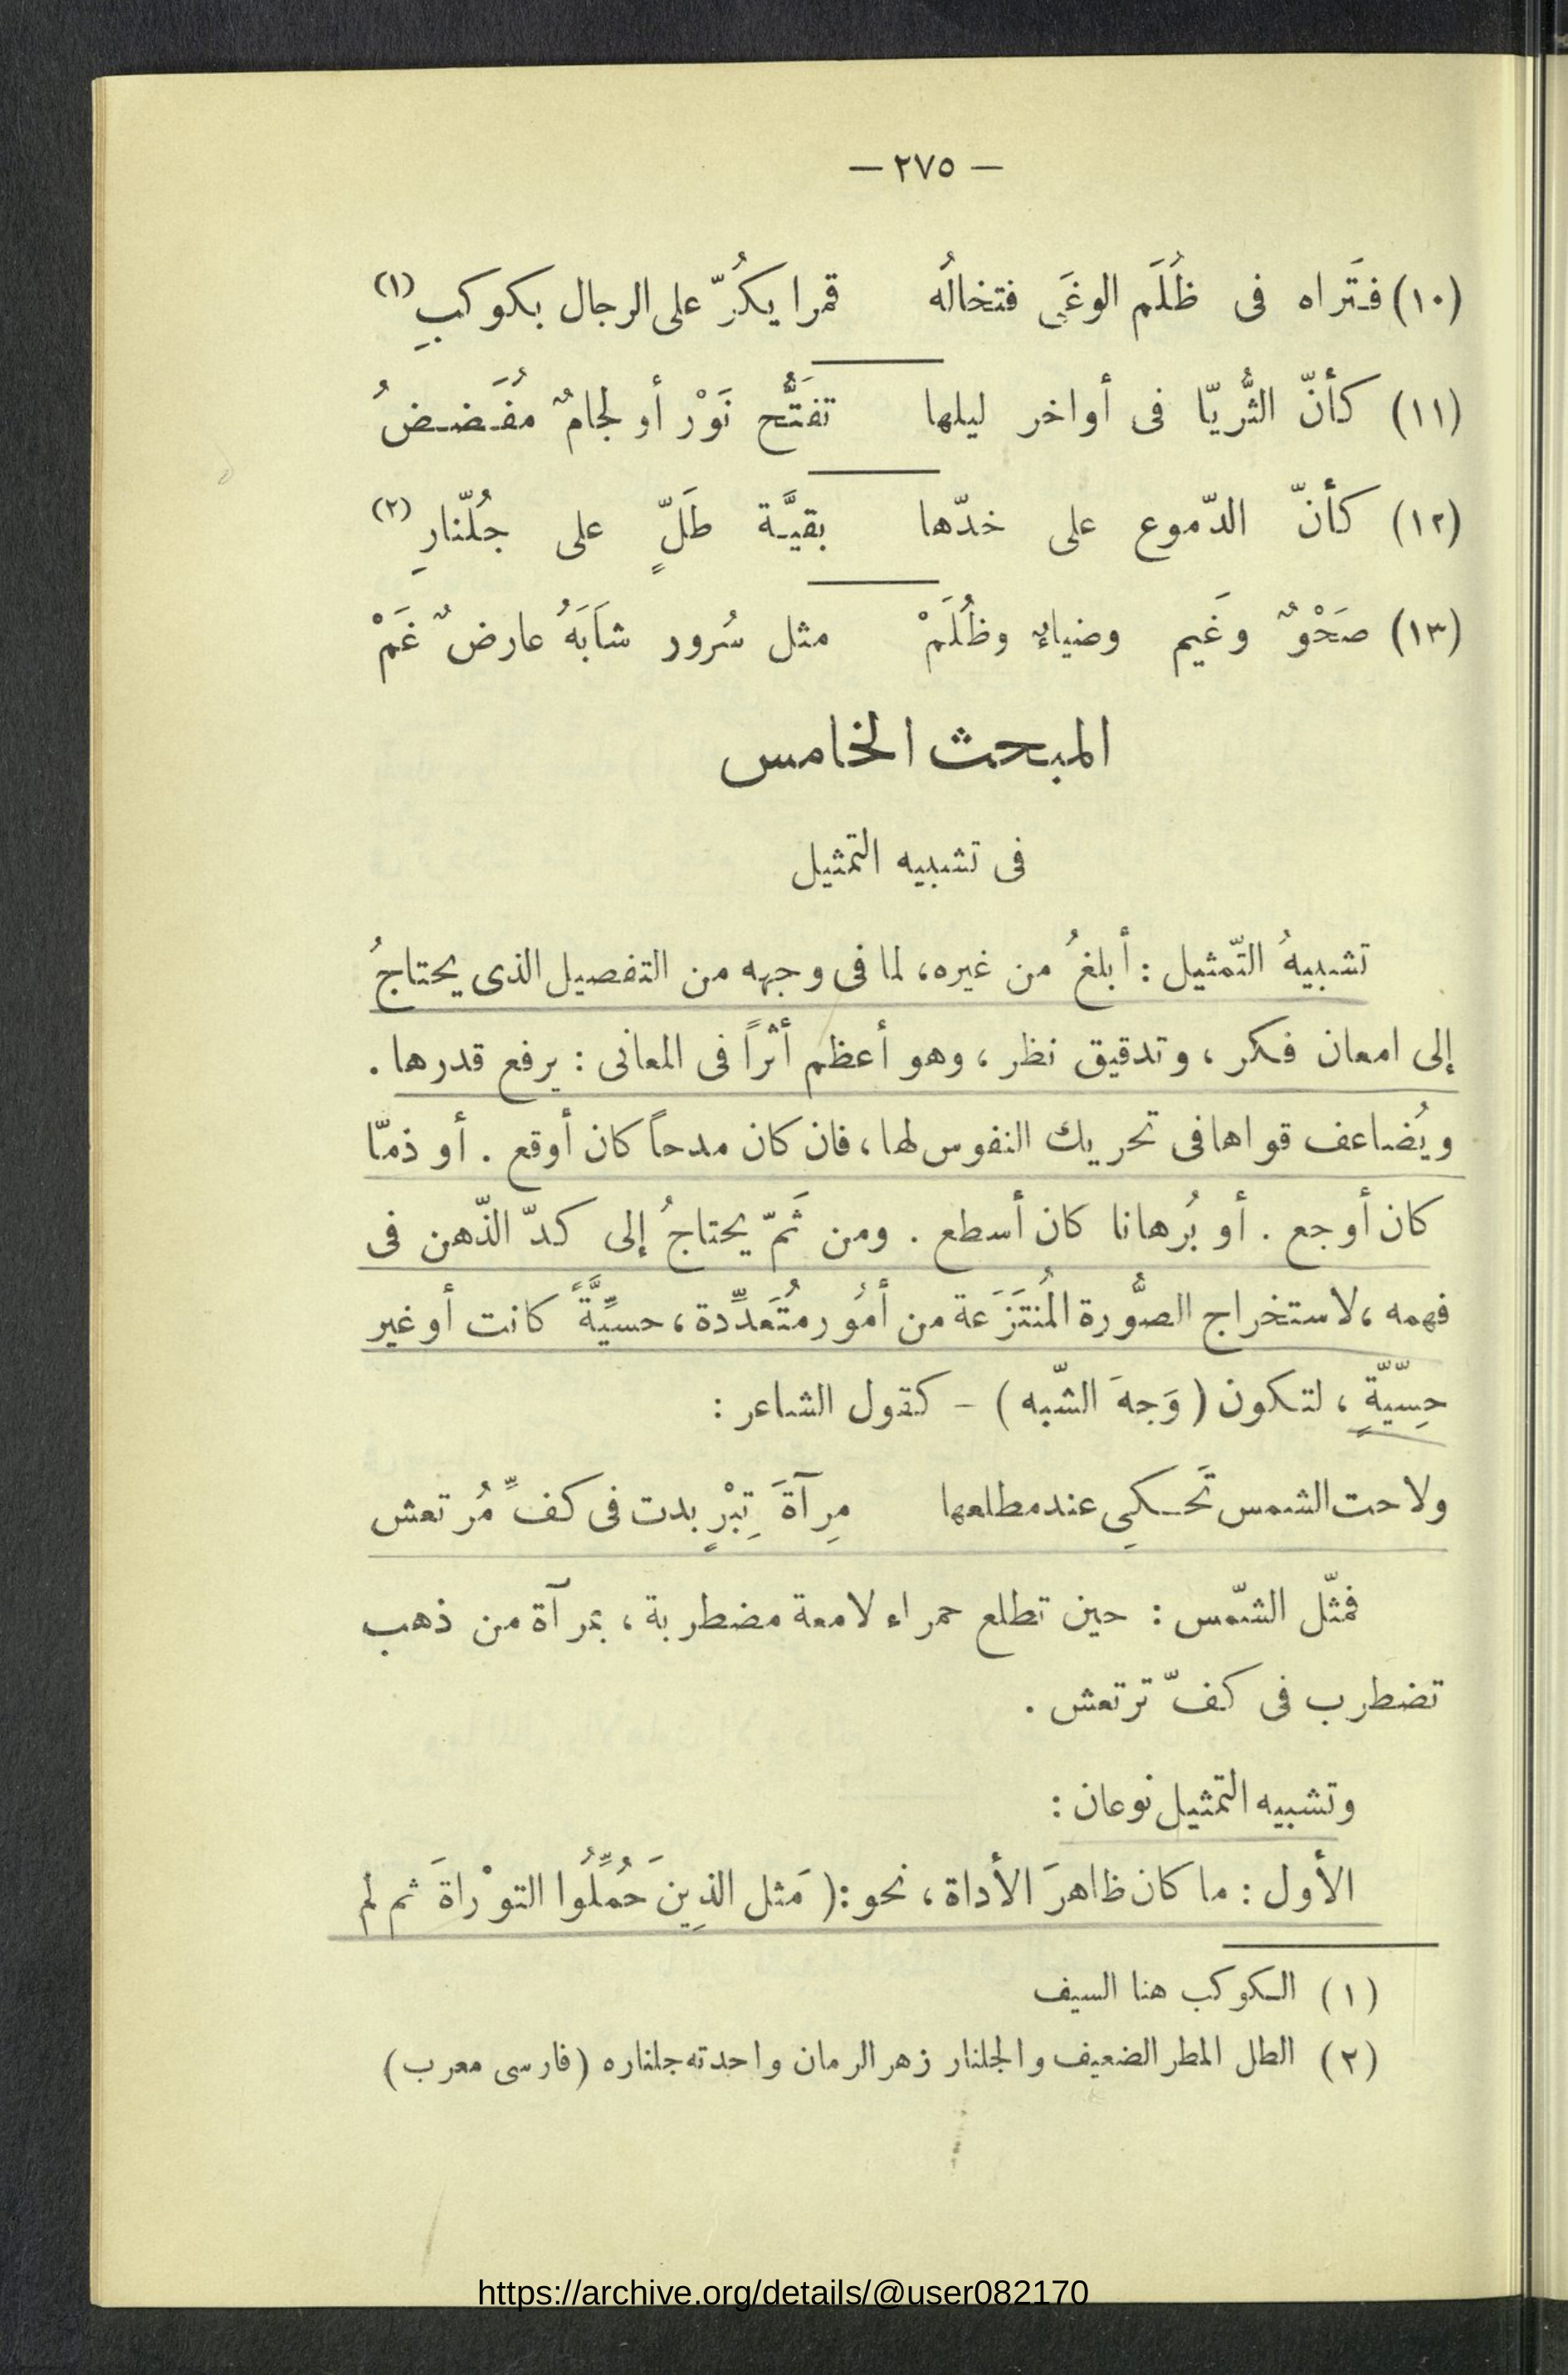 — ٢٧٥ —
(١٠) فَتَراه فى ظُلَم الوغَى فتخالُه قمرا يكُرّ على الرجال بكوكبِ (١)
(١١) كأنّ الثُّريّا فى أواخر ليلها تفَتُّح نَوْر أو لجامٌ مُفَضضُ
(١٢) كأنّ الدّموع على خدّها بقيَّة طَلٍّ على جُلّنارِ (٢)
(١٣) صَحْوٌ وغَيم وضياءٌ وظُلَمْ مثل سُرور شَابَهُ عارضٌ غَمْ
المبحث الخامس
فى تشبيه التمثيل
تشبيهُ التّمثيل : أبلغُ من غيره، لما فى وجهه من التفصيل الذى يحتاجُ
إلى امعان فكر ، وتدقيق نظر ، وهو أعظم أثراً فى المعانى : يرفع قدرها .
ويُضاعف قواها فى تحريك النفوس لها ، فان كان مدحاً كان أوقع . أو ذمّا
كان أوجع . أو بُرهانا كان أسطع . ومن ثَمّ يحتاجُ إلى كدّ الذّهن فى
فهمه ، لاستخراج الصُّورة المُنتَزَعة من أمُور مُتَعَدِّدة ، حسيِّةً كانت أو غير
حِسّيّةٍ ، لتكون ( وَجهَ الشّبه ) – كقول الشاعر :
ولاحت الشمس تَحكِى عند مطلعها مِرآةَ تِبْرٍ بدت فى كفِّ مُرتعش
فمثّل الشّمس : حين تطلع حمراء لامعة مضطربة ، بمرآة من ذهب
تضطرب فى كفّ ترتعش .
وتشبيه التمثيل نوعان :
الأول : ما كان ظاهرَ الأداة ، نحو : ( مَثل الذِينَ حُمِّلُوا التوْراةَ ثم لم
(١) الكوكب هنا السيف
(٢) الطل المطر الضعيف والجلنار زهر الرمان واحدته جلناره (فارسى معرب)
https://archive.org/details/@user082170